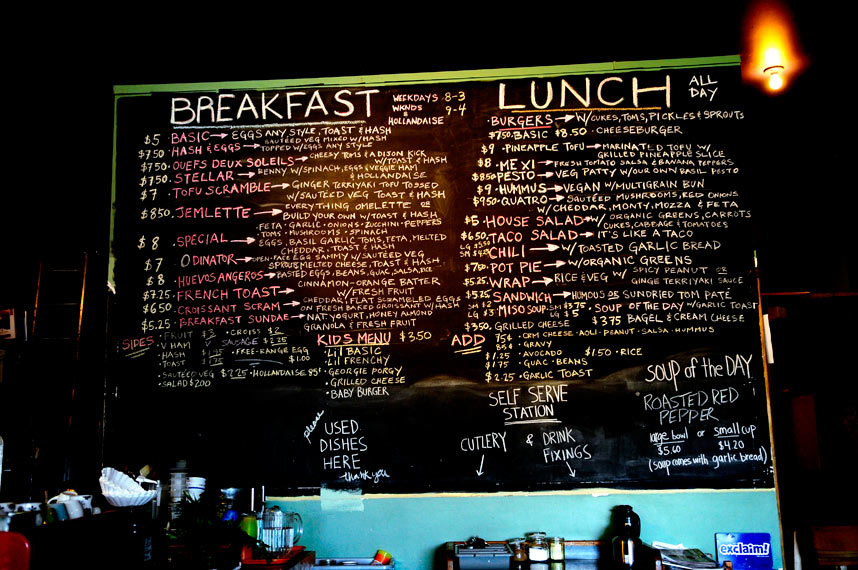 BREAKFAST
WEEKDAYS 8-3
WKNDS 9-4
& HOLLANDAISE
$5 BASIC → EGGS ANY STYLE, TOAST & HASH
$7.50 HASH & EGGS → SAUTÉED VEG MIXED W/HASH
TOPPED W/EGGS ANY STYLE
$7.50 OUEFS DEUX SOLEILS → CHEESY TOMS & ADISON KICK
W/TOAST & HASH
$7.50 STELLAR → BENNY W/SPINACH, EGGS & VEGGIE HAM
& HOLLANDAISE
$7 TOFU SCRAMBLE → GINGER TERRIYAKI TOFU TOSSED
W/SAUTÉED VEG TOAST & HASH
$8.50 JEMLETTE → EVERYTHING OMELETTE OR
BUILD YOUR OWN W/TOAST & HASH
FETA · GARLIC · ONIONS · ZUCCHINI · PEPPERS
TOMS · MUSHROOMS · SPINACH
$8 SPECIAL → EGGS, BASIL GARLIC TOMS, FETA, MELTED
CHEDDAR, TOAST & HASH
$7 ODINATOR → OPEN-FACE EGG SAMMY W/SAUTÉED VEG
SPROUTS MELTED CHEESE, TOAST & HASH
$8 HUEVOS ANGEROS → BASTED EGGS, BEANS, GUAC, SALSA, RICE
$7.25 FRENCH TOAST → CINNAMON-ORANGE BATTER
W/FRESH FRUIT
$6.50 CROISSANT SCRAM → CHEDDAR, FLAT SCRAMBLED EGGS
ON FRESH BAKED CROISSANT W/HASH
$5.25 BREAKFAST SUNDAE → NAT. YOGURT, HONEY ALMOND
GRANOLA & FRESH FRUIT
SIDES
· FRUIT · CROISS $2
· V HAM V SAUSAGE $2.25
· HASH · FREE-RANGE EGG $1.00
· TOAST
· SAUTÉED VEG $2.25 · HOLLANDAISE .85¢
· SALAD $2.00
KIDS MENU $3.50
· LIL BASIC
· LIL FRENCHY
· GEORGIE PORGY
· GRILLED CHEESE
· BABY BURGER
LUNCH ALL DAY
· BURGERS → W/CUKES, TOMS, PICKLES & SPROUTS
$7.50 BASIC $8.50 · CHEESEBURGER
$9 · PINEAPPLE TOFU → MARINATED TOFU W/
GRILLED PINEAPPLE SLICE
$8 · MEXI → FRESH TOMATO SALSA & BANANA PEPPERS
$8.50 PESTO → VEG PATTY W/OUR OWN BASIL PESTO
$9 · HUMMUS → VEGAN W/MULTIGRAIN BUN
$9.50 · QUATRO → SAUTÉED MUSHROOMS, RED ONIONS
W/CHEDDAR, MONTY, MOZZA & FETA
$5 · HOUSE SALAD → W/ ORGANIC GREENS, CARROTS
CUKES, CABBAGE & TOMATOES
$6.50 TACO SALAD → IT'S LIKE A TACO
LG $5.50
SM $4.25 CHILI → W/TOASTED GARLIC BREAD
$7.50 POT PIE → W/ORGANIC GREENS
$5.25 · WRAP → RICE & VEG W/ SPICY PEANUT OR
GINGE TERRIYAKI SAUCE
$5.25 SANDWICH → HUMOUS OR SUNDRIED TOM PATÉ
SM $2 LG $3 MISO SOUP SM $3.75 LG $5 · SOUP OF THE DAY W/GARLIC TOAST
$3.50 · GRILLED CHEESE $3.75 BAGEL & CREAM CHEESE
ADD
75¢ · CRM CHEESE · AOLI · PEANUT · SALSA · HUMMUS
85¢ · GRAVY
$1.25 · AVOCADO $1.50 · RICE
$1.75 · GUAC · BEANS
$2.25 · GARLIC TOAST
SELF SERVE
STATION
CUTLERY & DRINK
FIXINGS
SOUP of the DAY
ROASTED RED
PEPPER
large bowl or small cup
$5.60 $4.20
(soup comes with garlic bread)
please
USED
DISHES
HERE
thank you
exclaim!